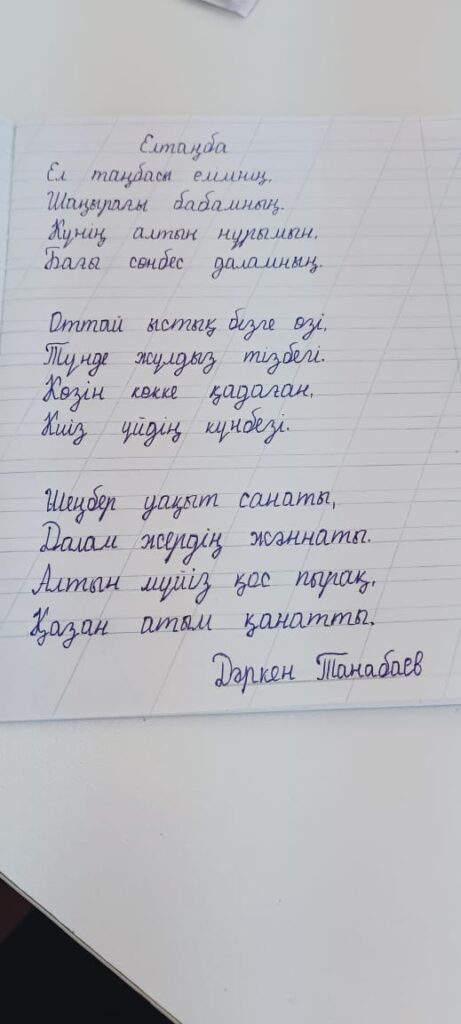 Елтаңба
Ел таңбасы елімнің,
Шаңырағы бабамның.
Күнің алтын нұрымын,
Бағы сөнбес даламның.
Оттай ыстық бізге өзі,
Түнде жұлдыз тізбегі.
Көзін көкке қадаған,
Киіз үйдің күнбезі.
Шеңбер уақыт санаты,
Далам жердің жәннаты.
Алтын мүйіз қос пырақ,
Қазан атым қанатты.
Дәркен Танабаев